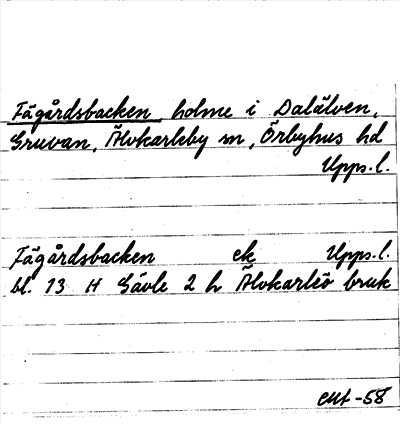 Fägårdsbacken holme i Dalälven,
Gruvan, Älvkarleby sn, Örbyhus hd
Upps. l.
Fägårdsbacken ek Upps. l.
bl. 13 H Gävle 2 h Älvkarleö bruk
-58